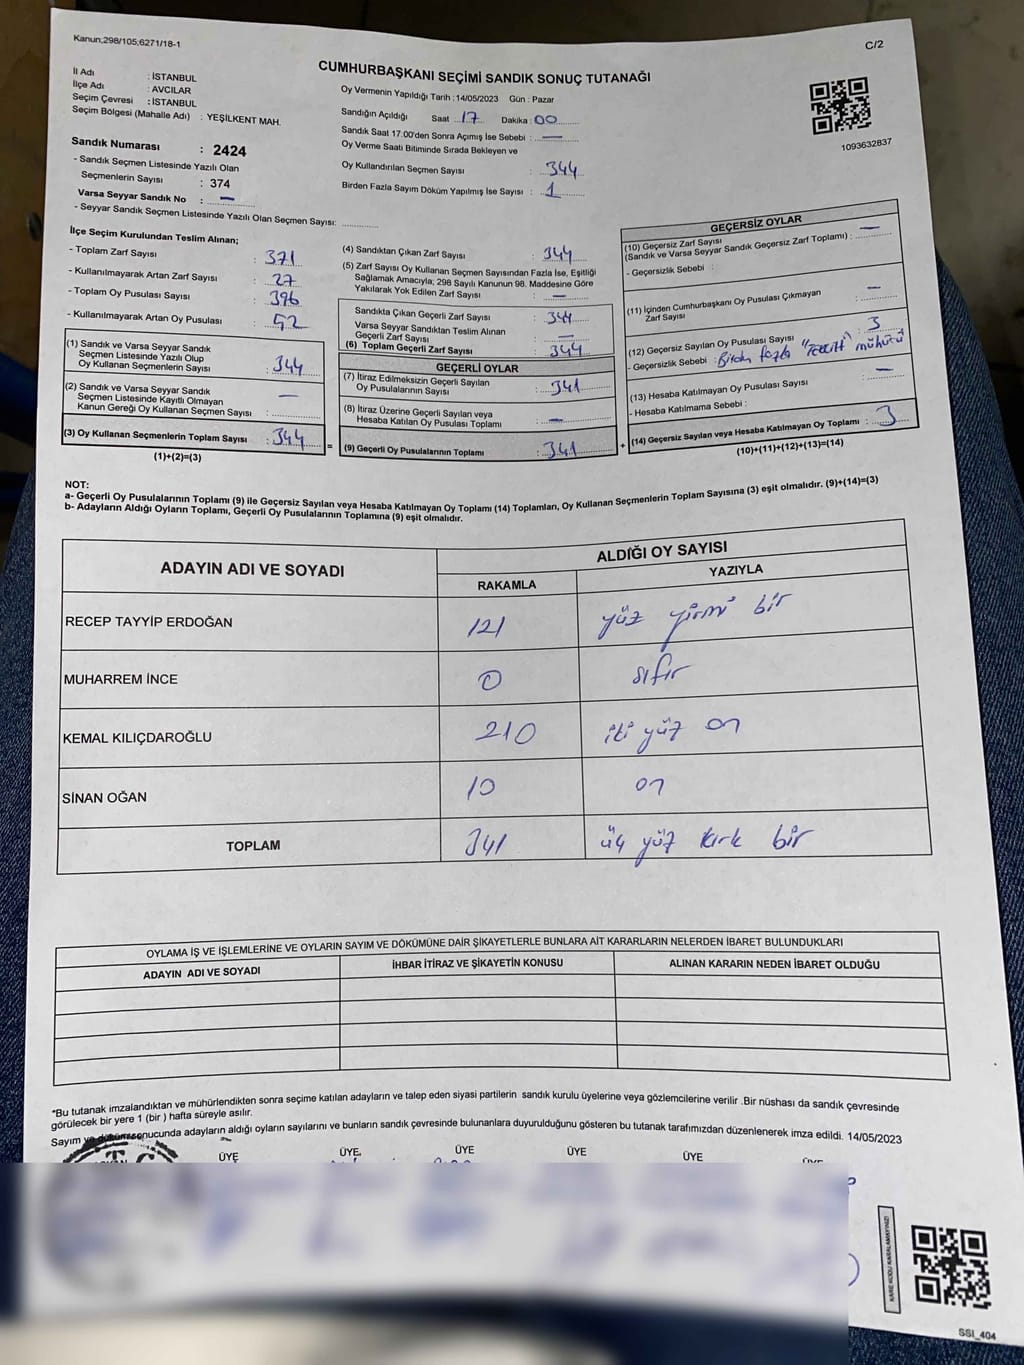 Kanun;298/105;6271/18-1
C/2
CUMHURBAŞKANI SEÇİMİ SANDIK SONUÇ TUTANAĞI
İl Adı : İSTANBUL
İlçe Adı : AVCILAR
Seçim Çevresi : İSTANBUL
Seçim Bölgesi (Mahalle Adı) : YEŞİLKENT MAH.
Sandık Numarası : 2424
- Sandık Seçmen Listesinde Yazılı Olan
Seçmenlerin Sayısı : 374
Varsa Seyyar Sandık No : —
- Seyyar Sandık Seçmen Listesinde Yazılı Olan Seçmen Sayısı:
Oy Vermenin Yapıldığı Tarih :14/05/2023 Gün : Pazar
Sandığın Açıldığı Saat 17 Dakika : 00
Sandık Saat 17.00'den Sonra Açımış İse Sebebi : —
Oy Verme Saati Bitiminde Sırada Bekleyen ve
Oy Kullandırılan Seçmen Sayısı : 344
Birden Fazla Sayım Döküm Yapılmış İse Sayısı : 1
1093632837
İlçe Seçim Kurulundan Teslim Alınan;
- Toplam Zarf Sayısı : 371
- Kullanılmayarak Artan Zarf Sayısı : 27
- Toplam Oy Pusulası Sayısı : 396
- Kullanılmayarak Artan Oy Pusulası : 52
(1) Sandık ve Varsa Seyyar Sandık
Seçmen Listesinde Yazılı Olup
Oy Kullanan Seçmenlerin Sayısı : 344
(2) Sandık ve Varsa Seyyar Sandık
Seçmen Listesinde Kayıtlı Olmayan
Kanun Gereği Oy Kullanan Seçmen Sayısı : —
(3) Oy Kullanan Seçmenlerin Toplam Sayısı : 344
(1)+(2)=(3)
(4) Sandıktan Çıkan Zarf Sayısı : 344
(5) Zarf Sayısı Oy Kullanan Seçmen Sayısından Fazla İse, Eşitliği
Sağlamak Amacıyla; 298 Sayılı Kanunun 98. Maddesine Göre
Yakılarak Yok Edilen Zarf Sayısı : —
Sandıkta Çıkan Geçerli Zarf Sayısı : 344
Varsa Seyyar Sandıktan Teslim Alınan
Geçerli Zarf Sayısı : —
(6) Toplam Geçerli Zarf Sayısı : 344
=
GEÇERLİ OYLAR
(7) İtiraz Edilmeksizin Geçerli Sayılan
Oy Pusulalarının Sayısı : 341
(8) İtiraz Üzerine Geçerli Sayılan veya
Hesaba Katılan Oy Pusulası Toplamı : —
(9) Geçerli Oy Pusulalarının Toplamı : 341
+
GEÇERSİZ OYLAR
(10) Geçersiz Zarf Sayısı
(Sandık ve Varsa Seyyar Sandık Geçersiz Zarf Toplamı) : —
- Geçersizlik Sebebi :
(11) İçinden Cumhurbaşkanı Oy Pusulası Çıkmayan
Zarf Sayısı : —
(12) Geçersiz Sayılan Oy Pusulası Sayısı : 3
- Geçersizlik Sebebi : Birden fazla "TERCİH" mühürü
(13) Hesaba Katılmayan Oy Pusulası Sayısı : —
- Hesaba Katılmama Sebebi :
(14) Geçersiz Sayılan veya Hesaba Katılmayan Oy Toplamı : 3
(10)+(11)+(12)+(13)=(14)
NOT:
a- Geçerli Oy Pusulalarının Toplamı (9) ile Geçersiz Sayılan veya Hesaba Katılmayan Oy Toplamı (14) Toplamları, Oy Kullanan Seçmenlerin Toplam Sayısına (3) eşit olmalıdır. (9)+(14)=(3)
b- Adayların Aldığı Oyların Toplamı, Geçerli Oy Pusulalarının Toplamına (9) eşit olmalıdır.
ADAYIN ADI VE SOYADI
ALDIĞI OY SAYISI
RAKAMLA YAZIYLA
RECEP TAYYİP ERDOĞAN 121 yüz yirmi bir
MUHARREM İNCE 0 sıfır
KEMAL KILIÇDAROĞLU 210 iki yüz on
SİNAN OĞAN 10 on
TOPLAM 341 üç yüz kırk bir
OYLAMA İŞ VE İŞLEMLERİNE VE OYLARIN SAYIM VE DÖKÜMÜNE DAİR ŞİKAYETLERLE BUNLARA AİT KARARLARIN NELERDEN İBARET BULUNDUKLARI
ADAYIN ADI VE SOYADI İHBAR İTİRAZ VE ŞİKAYETİN KONUSU ALINAN KARARIN NEDEN İBARET OLDUĞU
*Bu tutanak imzalandıktan ve mühürlendikten sonra seçime katılan adayların ve talep eden siyasi partilerin sandık kurulu üyelerine veya gözlemcilerine verilir .Bir nüshası da sandık çevresinde
görülecek bir yere 1 (bir ) hafta süreyle asılır.
Sayım ve döküm sonucunda adayların aldığı oyların sayılarını ve bunların sandık çevresinde bulunanlara duyurulduğunu gösteren bu tutanak tarafımızdan düzenlenerek imza edildi. 14/05/2023
ÜYE ÜYE ÜYE ÜYE ÜYE
KARE KODU KARALAMAYINIZ!
SSI_404